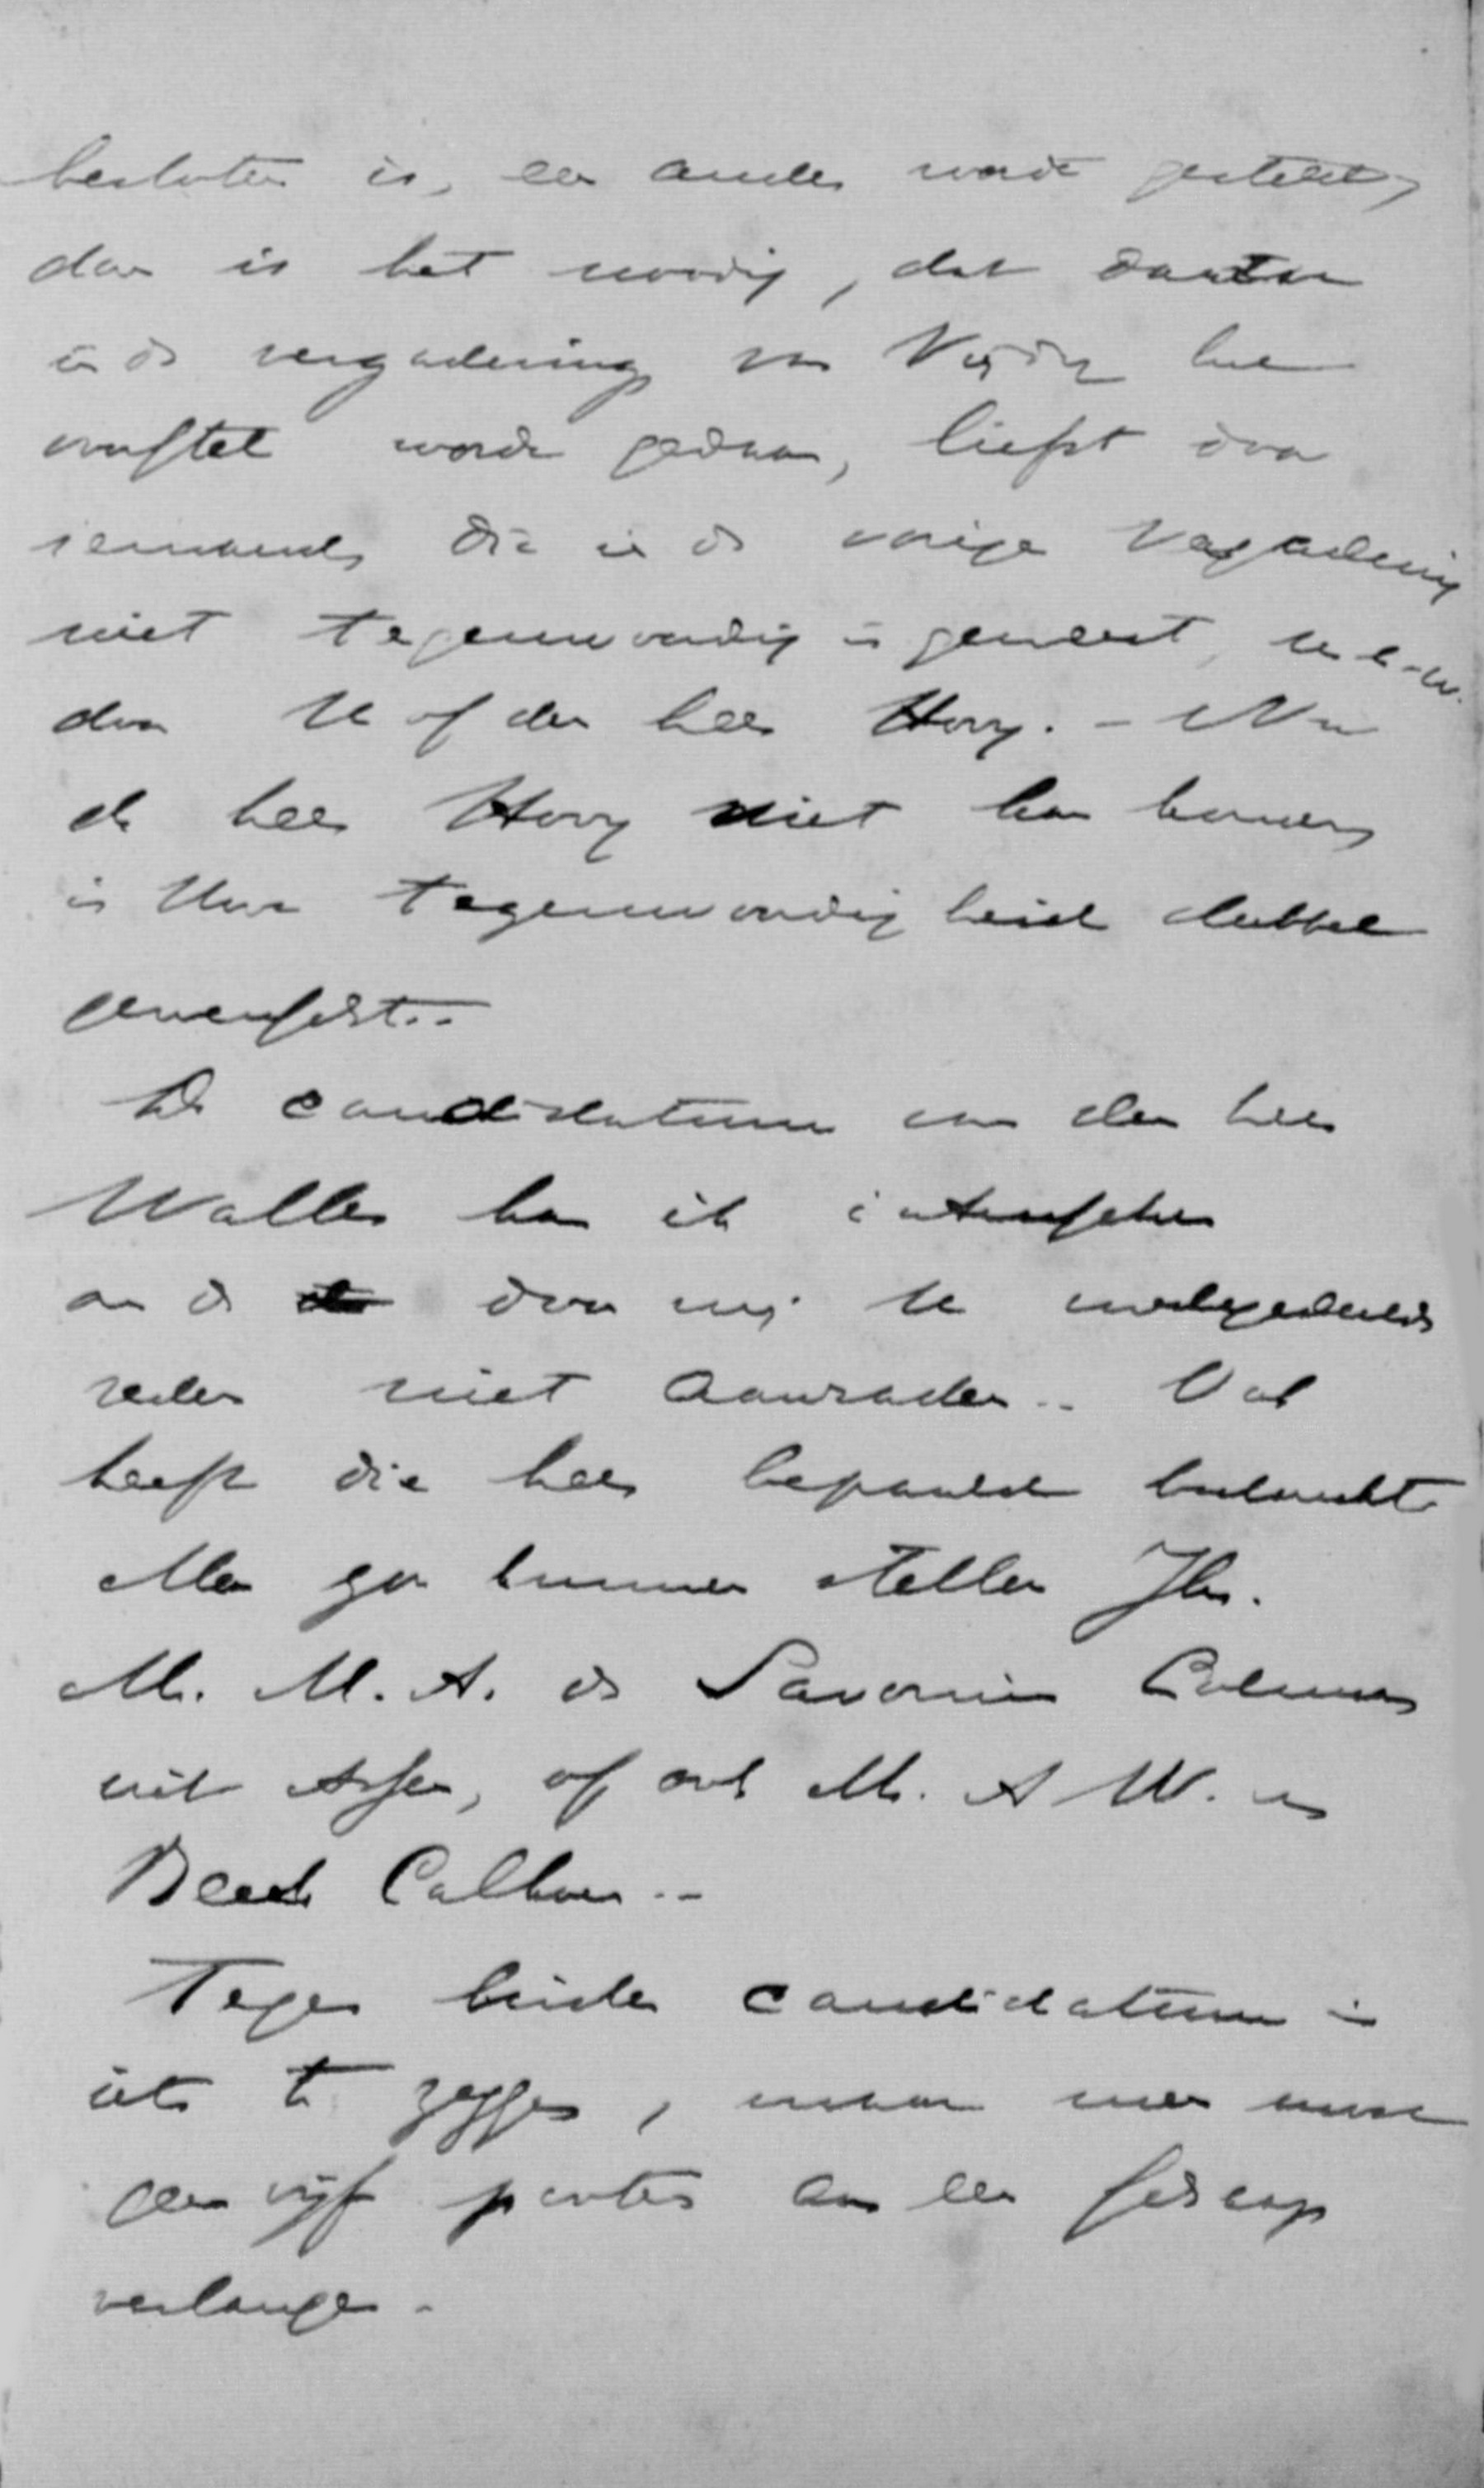 besloten is, een ander worde gesteld,
dan is het noodig, dat daartoe
in de vergadering van Vrijdag het
voorstel worde gedaan, liefst door
iemand, die in de vorige vergadering
niet tegenwoordig is geweest,
door U of den heer Hovy. - Nu
de heer Hovy niet kan komen,
is Uwe tegenwoordigheid dubbel
gewenscht. -
De candidatuur van den heer
Waller kan ik intusschen
om de door mij U medegedeelde
reden niet aanraden. -
heeft die heer bepaald bedankt.
Men zou kunnen stellen Jhr.
Mr. M. A. de Savornin Lohman
uit Assen, of ook Mr. A W. van
Beeck Calkoen. -
Tegen beide candidaturen is
iets te zeggen, maar men moet
geen vijf pooten aan een schaap
verlangen. -